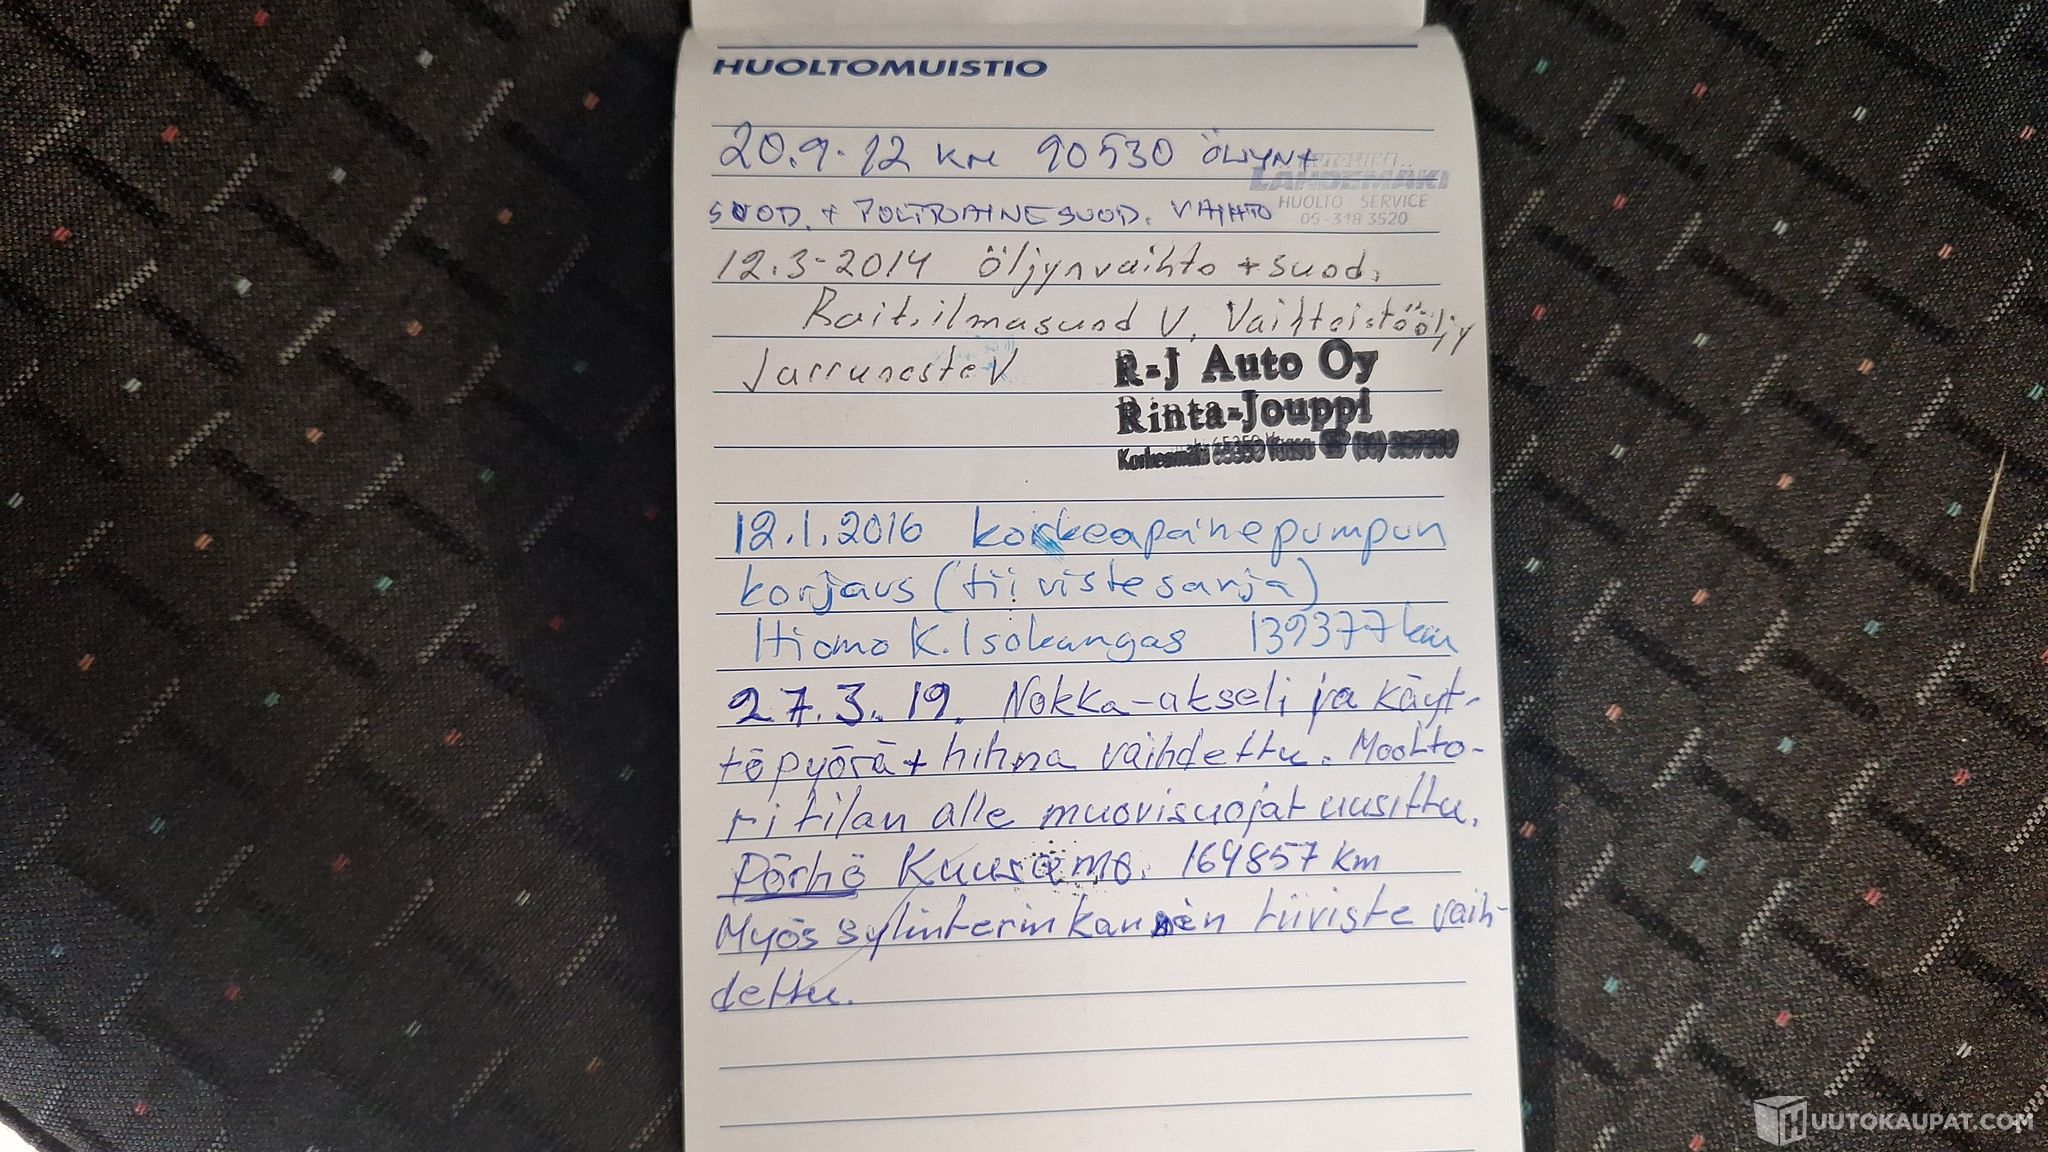 HUOLTOMUISTIO
20.9.12 KM 90530 ÖLJYN+
LAHDEMÄKI
HUOLTO - SERVICE
06-318 3520
SUOD. + POLTTOAINESUOD. VAIHTO
12.3-2014 Öljynvaihto + suod.
Rait.ilmasuod V. Vaihteistööljy
Jarruneste V
R-J Auto Oy
Rinta-Jouppi
65350 Vaasa
12.1.2016 korkeapainepumpun
korjaus (tiivistesarja)
Hiomo K. Isokangas 139377 km
27.3.19. Nokka-akseli ja käyt-
töpyörä + hihna vaihdettu. Mootto-
ritilan alle muovisuojat uusittu.
Pörhö Kuusamo. 164857 km
Myös sylinterin kannen tiiviste vaih-
dettu.
HUUTOKAUPAT.COM